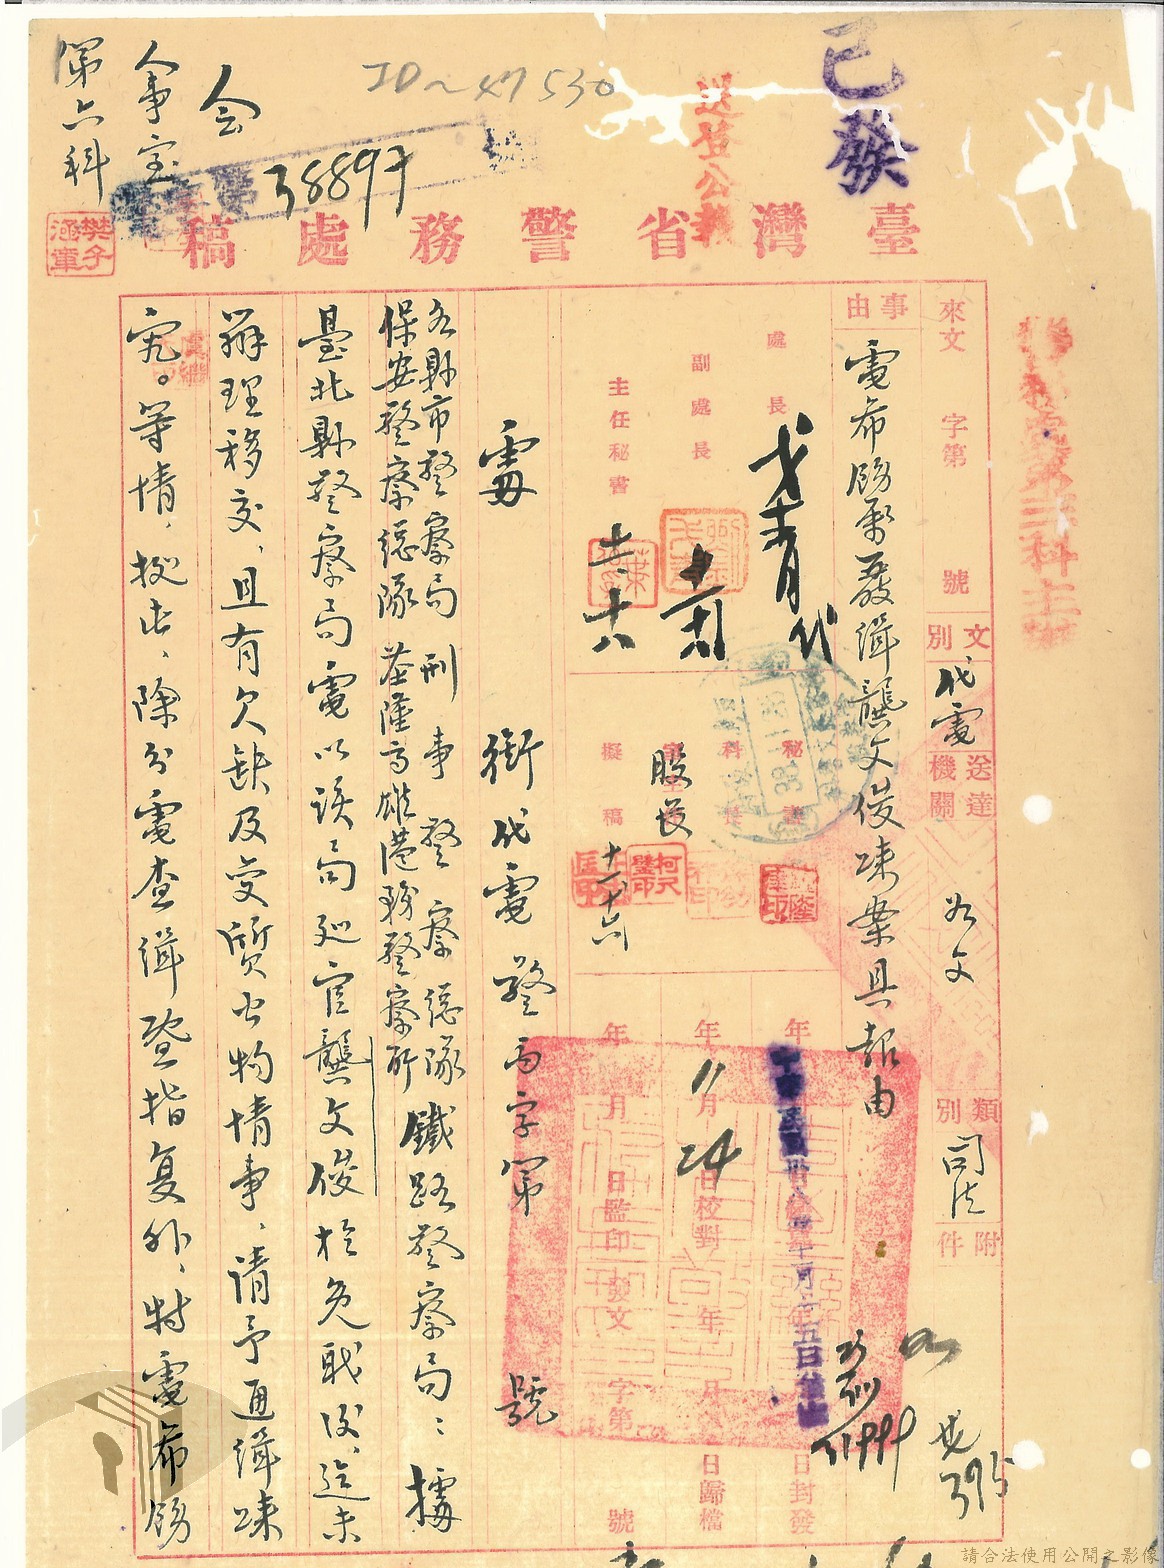 已發
送登公報
JD~47530
会
人事室
第六科
38897
臺灣省警務處稿
來文 字第 號
文別 代電
送達機關 如文
類別 司法
附件
事由 電希飭屬嚴緝龔文俊來案具報由
處長
代
副處長
主任秘書
秘書
科長
股長
擬稿
十一、十六
年 月 日封發
年11月24日校對
年 月 日歸檔
年 月 日監印
發文 字第 號
395
電 銜代電 警丙字第 號
各縣市警察局 刑事警察總隊 鐵路警察局:據
保安警察總隊 基隆高雄港務警察所
臺北縣警察局電以該局巡官龔文俊於免職後、迄未
辦理移交、且有欠缺及變質公物情事、請予通緝來
究。等情、據此、除分電查緝暨指复外、特電希飭
請合法使用公開之影像